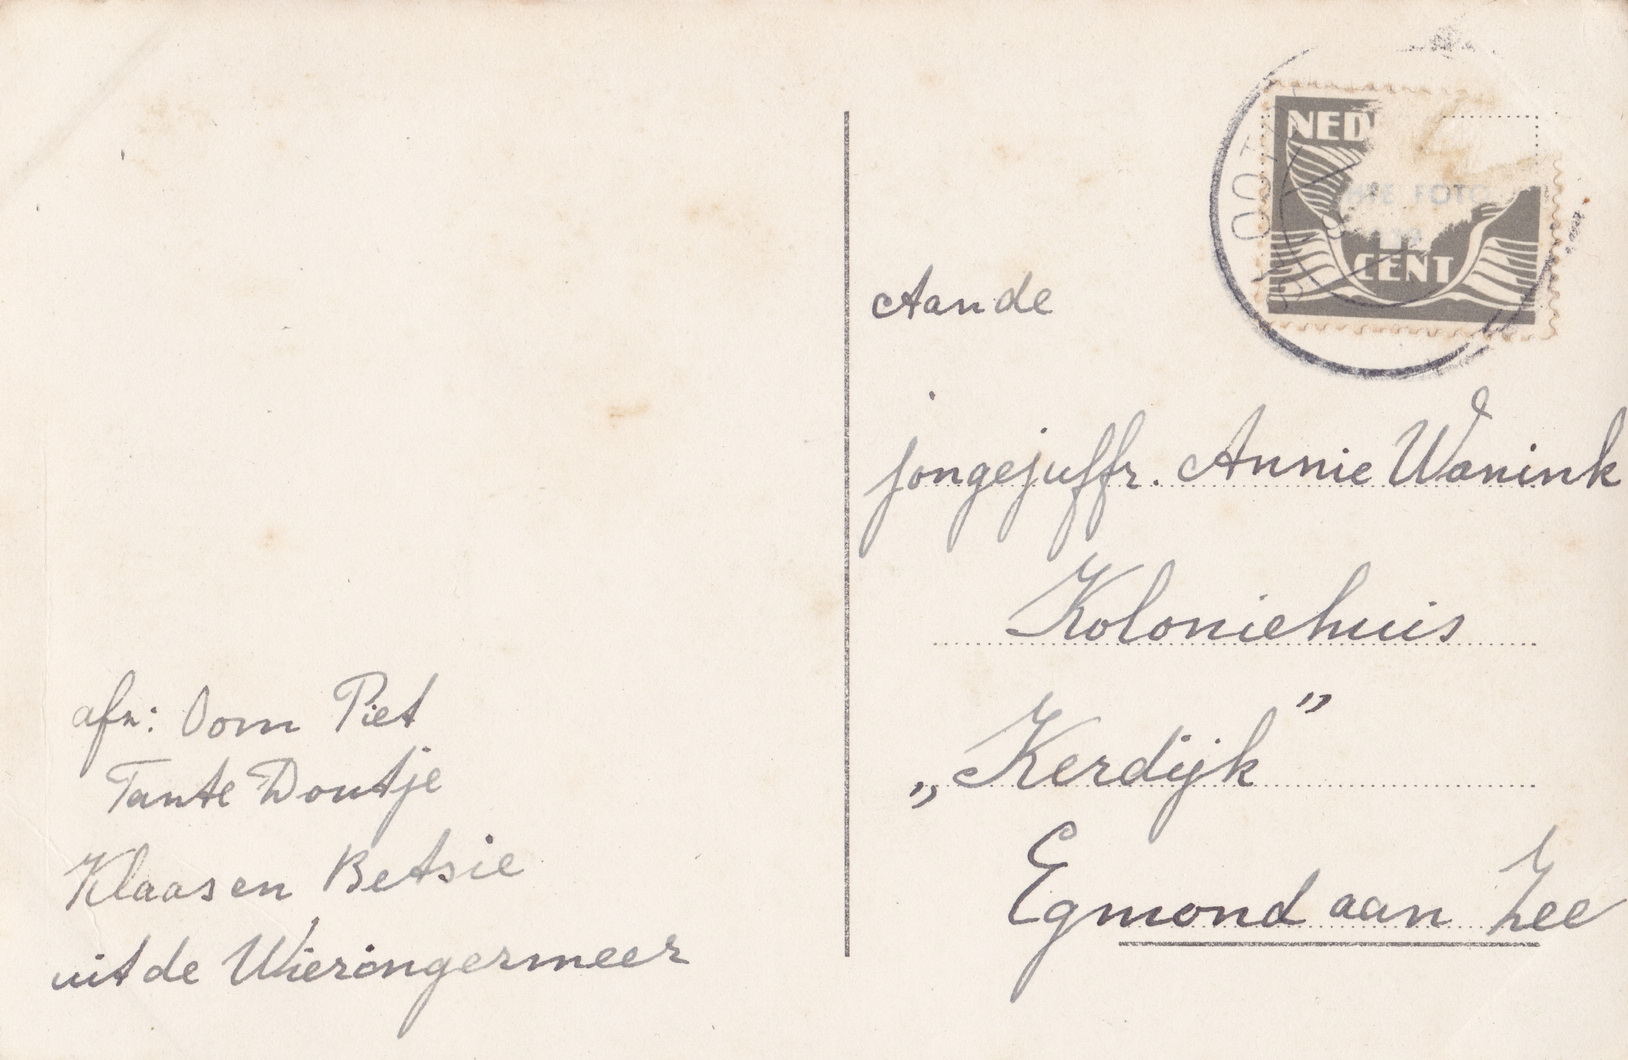 NED
CENT
Aan de
jongejuffr. Annie Wanink
Koloniehuis
„Kerdijk”
Egmond aan Zee
afz: Oom Piet
Tante Doutje
Klaas en Betsie
uit de Wieringermeer